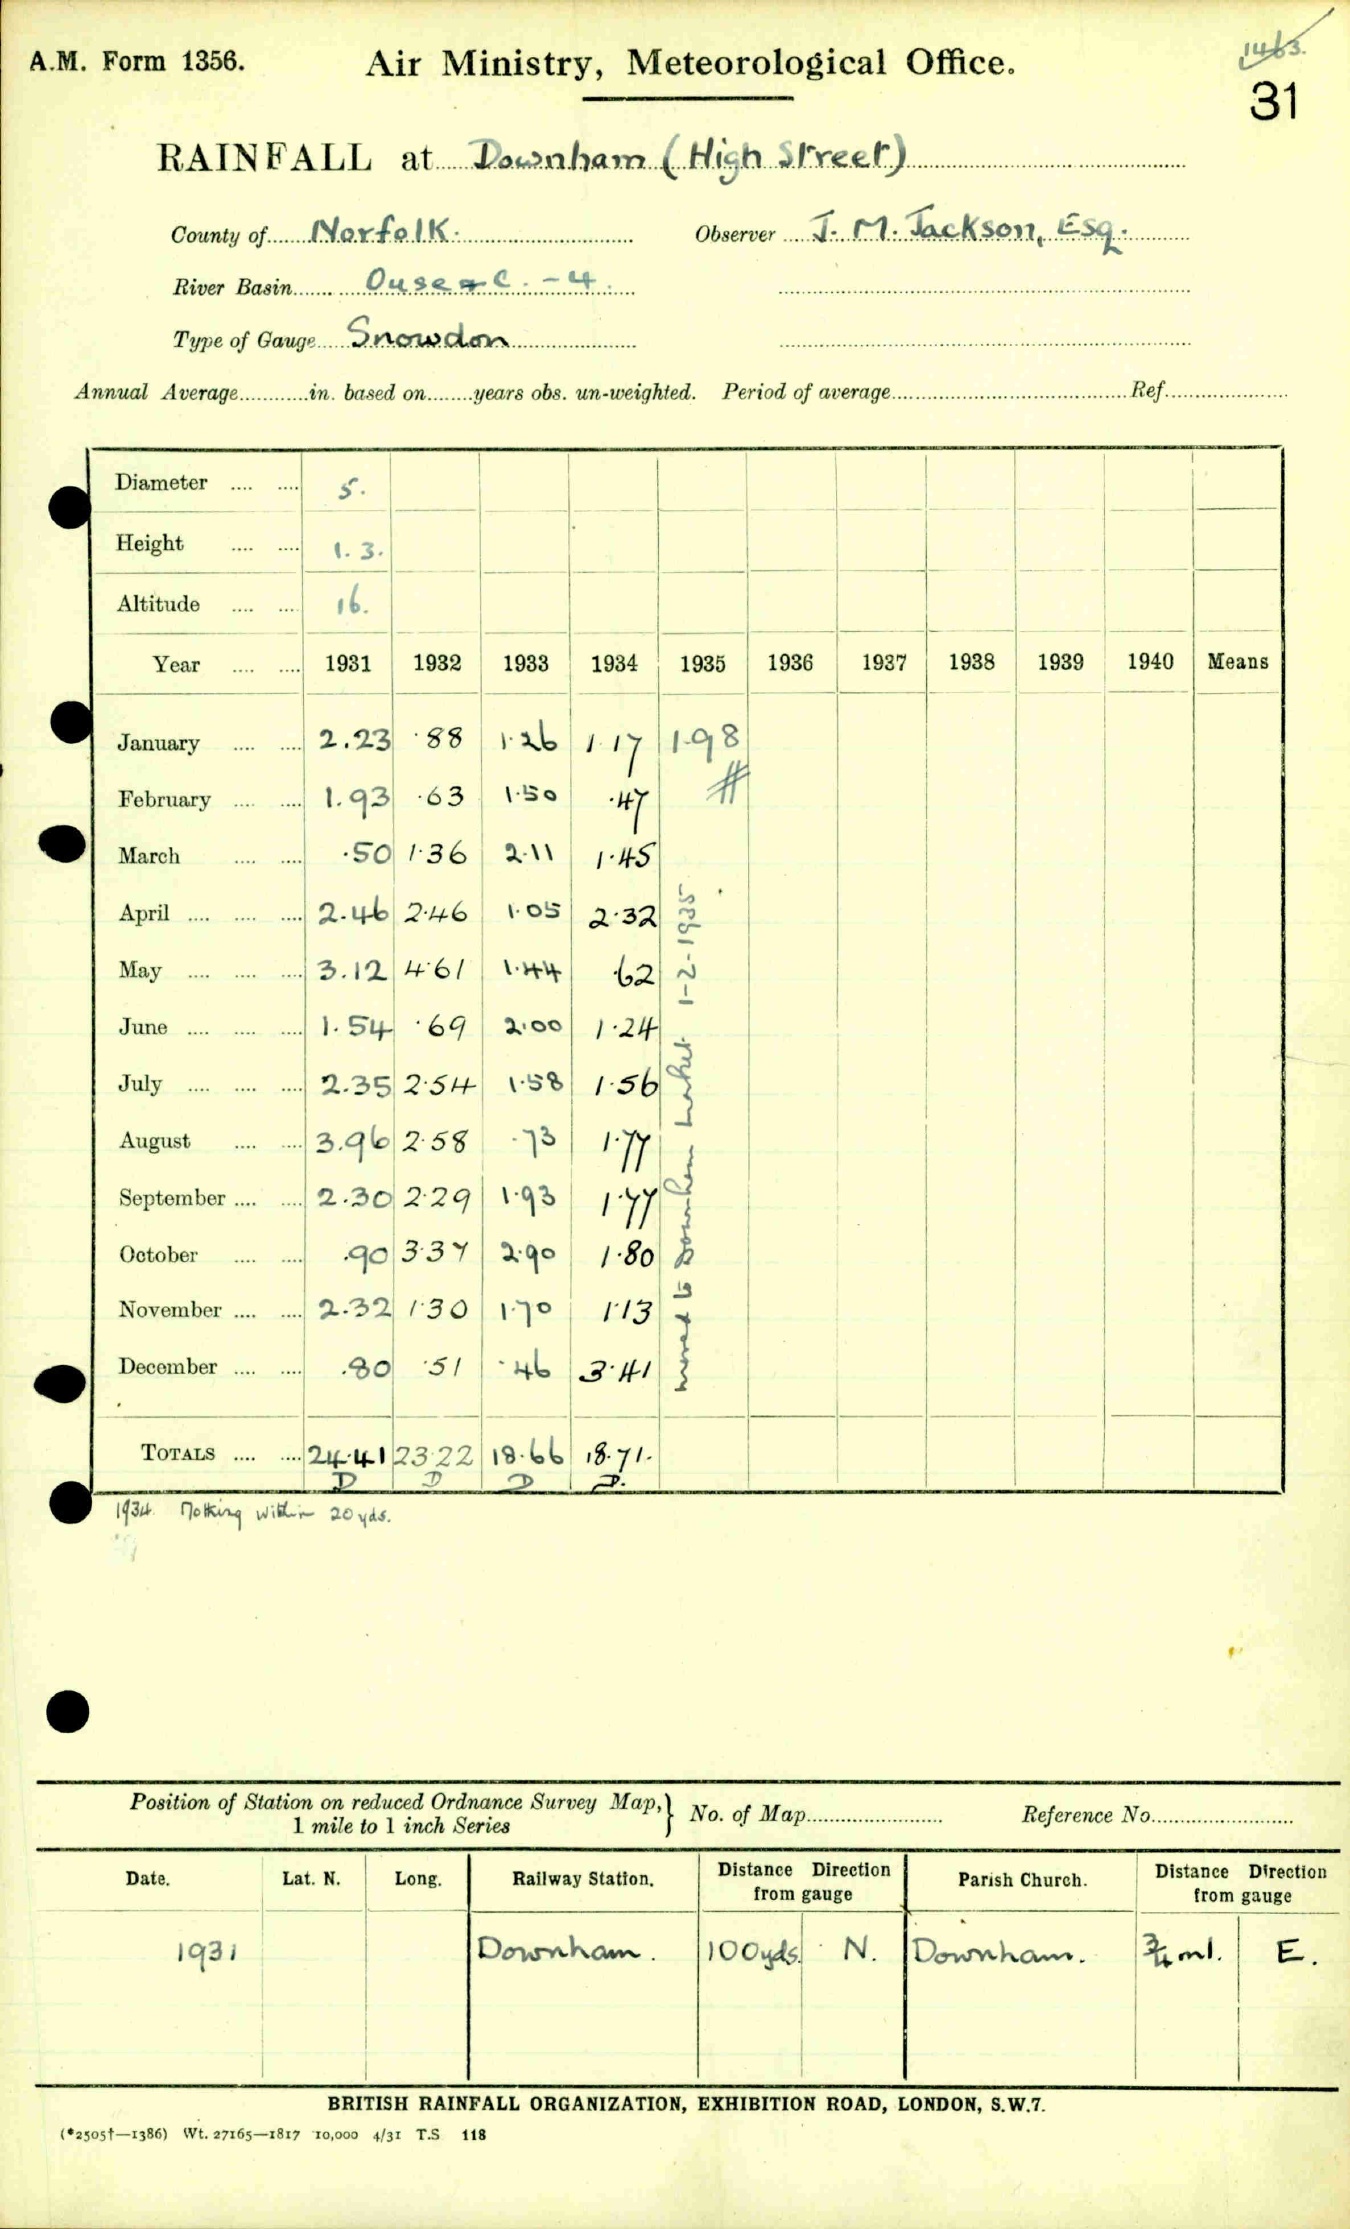 A.M. Form 1356.
Air Ministry, Meteorological Office.
1463.
31
RAINFALL at Downham (High Street)
County of Norfolk. Observer J. M. Jackson, Esq.
River Basin Ouse & C. - 4.
Type of Gauge Snowdon
Annual Average in. based on years obs. un-weighted. Period of average Ref.
Diameter 5.
Height 1.3.
Altitude 16.
Year 1931 1932 1933 1934 1935 1936 1937 1938 1939 1940 Means
January 2.23 .88 1.26 1.17 1.98
February 1.93 .63 1.50 .47 #
March .50 1.36 2.11 1.45
April 2.46 2.46 1.05 2.32
May 3.12 4.61 1.44 .62
June 1.54 .69 2.00 1.24
July 2.35 2.54 1.58 1.56
August 3.96 2.58 .73 1.77
September 2.30 2.29 1.93 1.77
October .90 3.37 2.90 1.80
November 2.32 1.30 1.70 1.13
December .80 .51 .46 3.41
moved to Downham Market 1-2-1935
TOTALS 24.41 23.22 18.66 18.71.
D D D D.
1934. Nothing within 20 yds.
Position of Station on reduced Ordnance Survey Map, } No. of Map Reference No.
1 mile to 1 inch Series
Date. Lat. N. Long. Railway Station. Distance Direction from gauge Parish Church. Distance Direction from gauge
1931 Downham. 100yds. N. Downham. 3/4 ml. E.
BRITISH RAINFALL ORGANIZATION, EXHIBITION ROAD, LONDON, S.W.7.
(*2505†—1386) Wt. 27165—1817 10,000 4/31 T.S 118